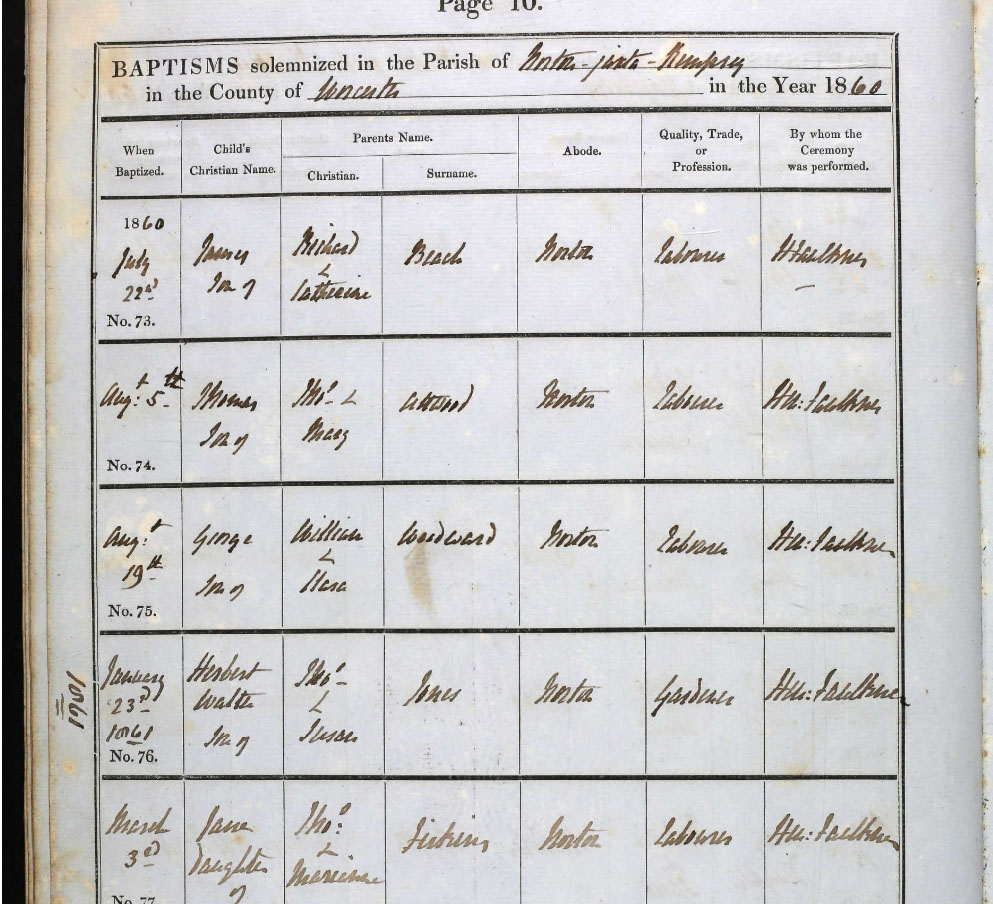 Page 10.
BAPTISMS solemnized in the Parish of Norton-juxta-Kempsey
in the County of Worcester in the Year 1860
When Baptized.
Child's Christian Name.
Parents Name.
Christian.
Surname.
Abode.
Quality, Trade, or Profession.
By whom the Ceremony was performed.
1860
July
22nd
No. 73.
James
Son of
Richard
&
Catherine
Beach
Norton
Labourer
H Faulkner
Augt. 5th
No. 74.
Thomas
Son of
Thos. &
Mary
Attwood
Norton
Labourer
Hn: Faulkner
Augt.
19th
No. 75.
George
Son of
William
&
Clara
Woodward
Norton
Labourer
Hn: Faulkner
1861
January
23rd
1861
No. 76.
Herbert
Walter
Son of
Thos.
&
Susan
Jones
Norton
Gardener
Hn: Faulkner
March
3rd
No. 77
Jane
Daughter
of
Thos.
&
Norton
Labourer
Hn: Faulkner